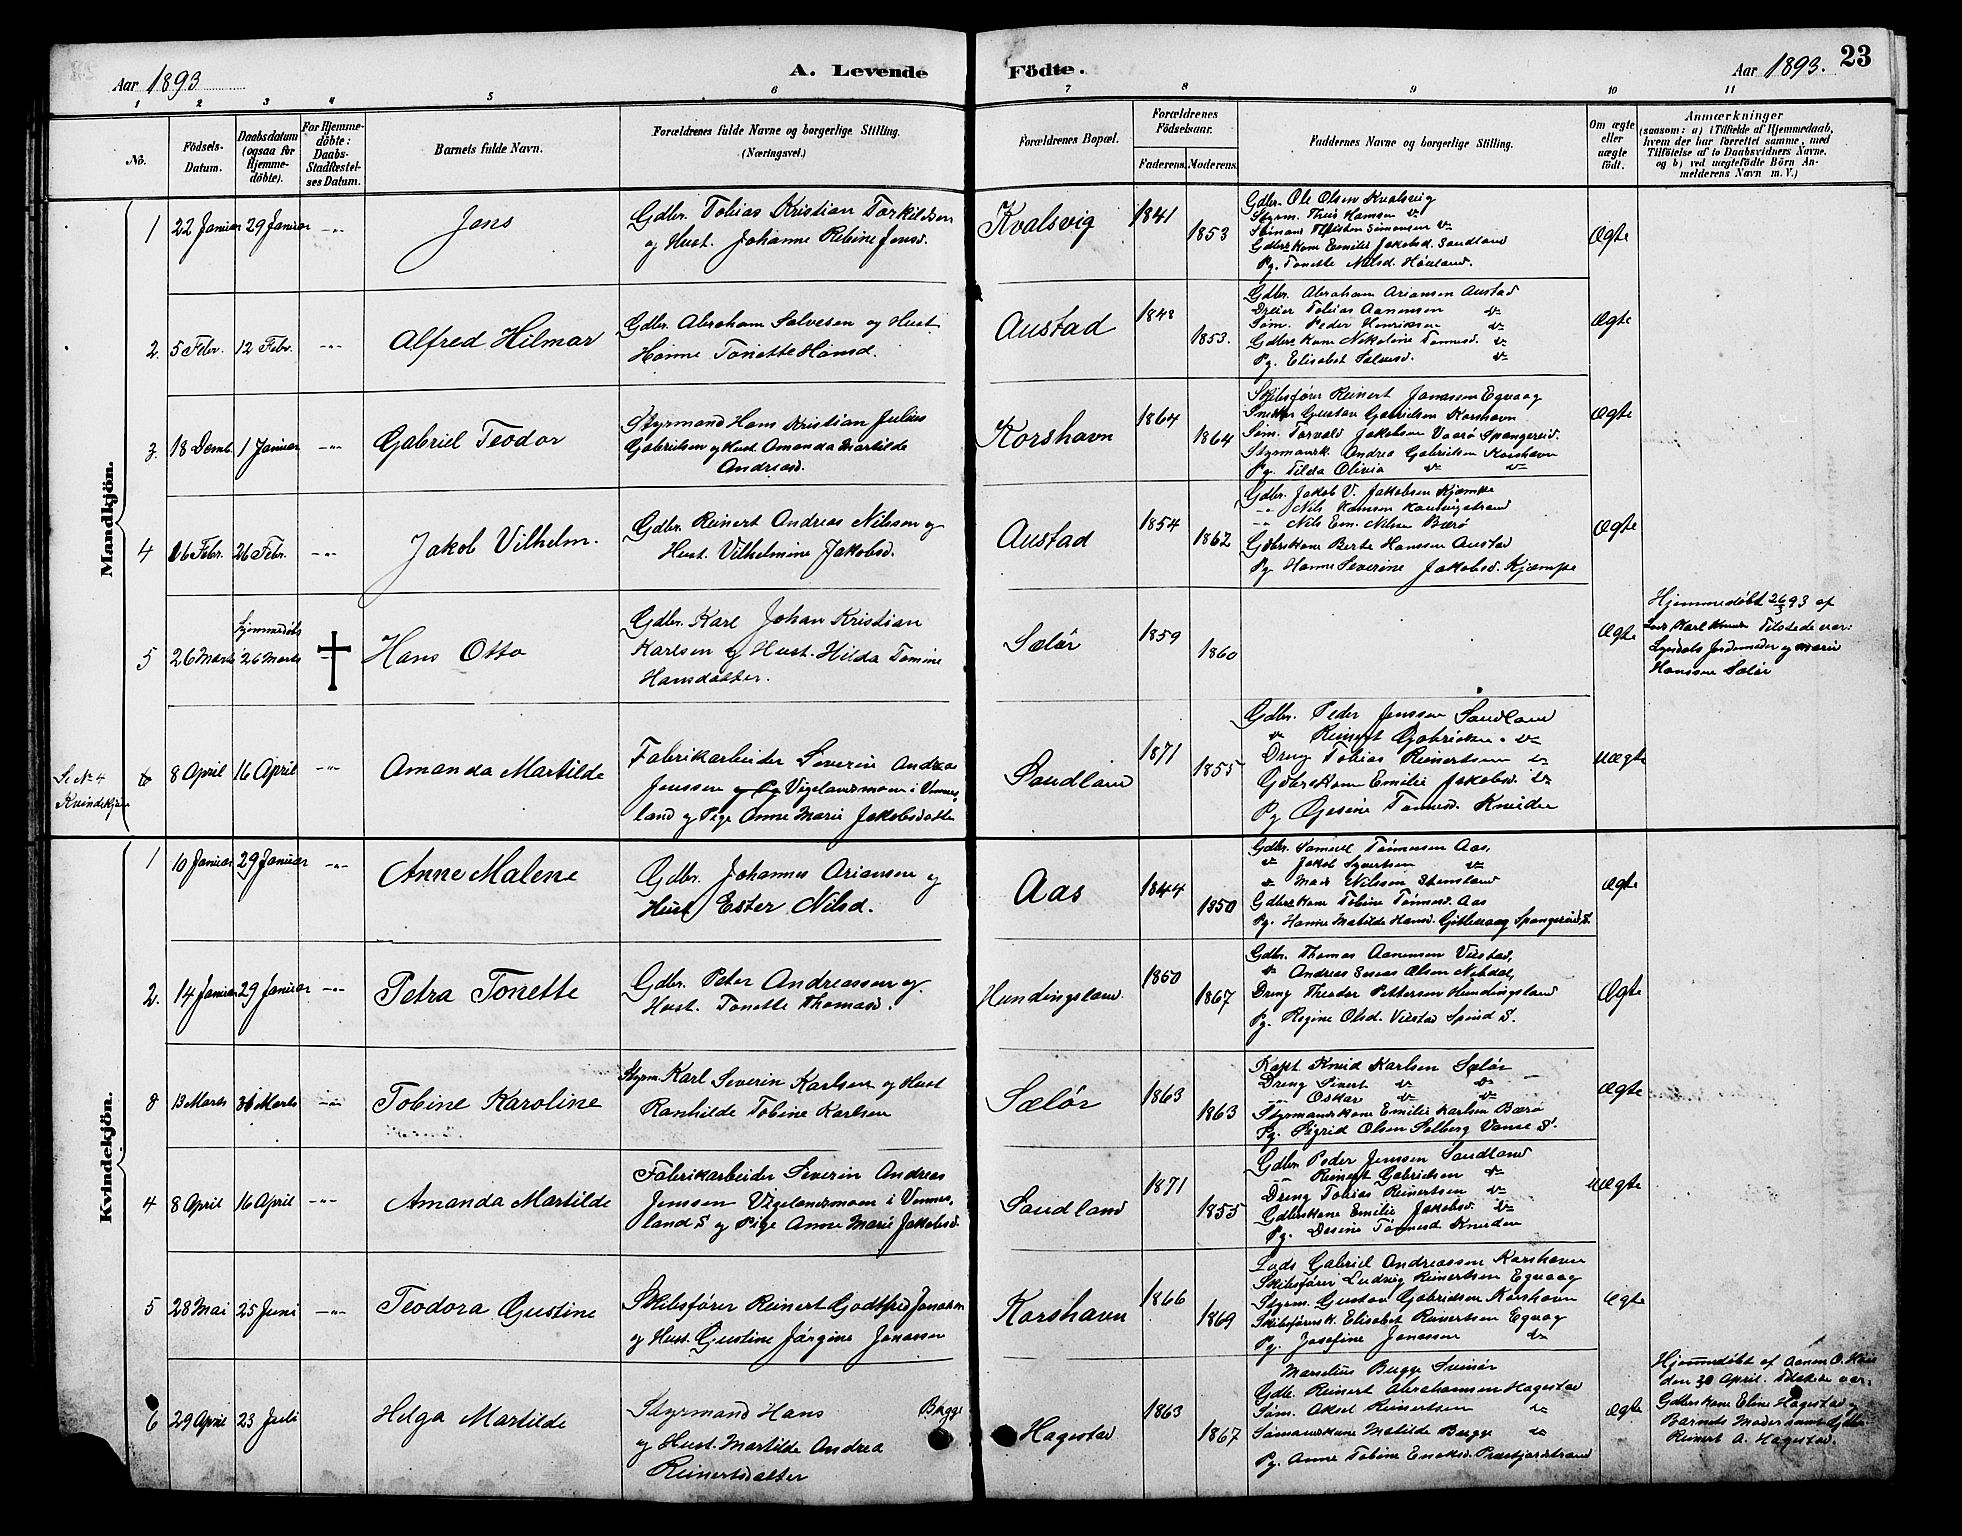 Aar 1893
A. Levende
Födte.
Aar 1893.
23
1 2 3 4 5 6 7 8 9 10 11
No.
Födsels-
Datum.
Daabsdatum
(ogsaa for
Hjemme-
döbte).
For Hjemme-
döbte:
Daabs-
Stadfæstel-
ses Datum.
Barnets fulde Navn.
Forældrenes fulde Navne og borgerlige Stilling.
(Næringsvei.)
Forældrenes Bopæl.
Forældrenes
Födselsaar.
Faderens.
Moderens.
Faddernes Navne og borgerlige Stilling.
Om ægte
eller
uægte
födt.
Anmærkninger
(saasom: a) i Tilfælde af Hjemmedaab,
hvem der har forrettet samme, med
Tilföielse af to Daabsvidners Navne,
og b) ved uægtefödte Börn An-
melderens Navn m. V.)
Mandkjön.
1 22 Januar 29 Januar -"- Jens
Gdbr. Tobias Kristian Torkildsen
og Hust. Johanne Rebine Jensd.
Kvalsvig 1841 1853
Gdbr. Ole Olsen Kvalsvig
Styrm. Theis Hansen do
Sømand Thosten Simonsen do
Gdbrskone Emilie Jakobsd. Sandland
Pg. Tonette Nilsd. Høiland.
Ægte
2. 5 Febr. 12 Febr. -"- Alfred Hilmar
Gdbr. Abraham Salvesen og Hust
Hanne Tonette Hansd.
Austad 1848 1853.
Gdbr. Abraham Ariansen Austad
Dreier Tobias Aanensen do
Søm. Peder Henriksen do
Gdbrskone Nikoline Tønnesd. do
Pg. Elisabet Salvesd. do
Ægte
3. 18 Decmb. 1 Januar -"- Gabriel Teodor
Styrmand Hans Kristian Julius
Gabrielsen og Hust. Amanda Martilde
Andreasd.
Korshavn 1864 1864
Skibsfører Reinert Jonassen Egvaag
Snekker Gustav Gabrielsen Korshavn
Søm. Torvald Jakobsen Vaarø Spangereid.
Styrmansk. Andrea Gabrielsen Korshavn
Pg. Tilda Olivia do do
Ægte
4 16 Febr. 26 Febr. -"- Jakob Vilhelm.
Gdbr. Reinert Andreas Nilssen og
Hust. Vilhelmine Jakobsd.
Austad 1854 1862
Gdbr. Jakob V. Jakobsen Kjæmpe
-"- Nils Hansen
-"- Nils Em. Nilsen Bærø
Gdbrskone Berte Hanssen Austad
Pg. Hanne Severine Jakobsd. Kjæmpe
Ægte
5 26 Marts hjemmedøbt 26 Marts † Hans Otto
Gdbr. Karl Johan Kristian
Karlsen og Hust. Hilda Tomine
Hansdatter.
Sælør 1859 1860
Ægte
Hjemmedøbt 26/3 93 af
Tilstede var:
Lyndals Jordemoder og Marie
Hanssen Sælør
Se No 4
Kvindekjøn
6 8 April 16 April -"- Amanda Martilde
Fabrikarbeider Severin Andreas
Jenssen og Pg Vigelandsmoen i Vennes-
land og Pige Anne Marie Jakobsdatter
Sandland 1871 1855
Gdbr. Peder Jenssen Sandland
do Reinert Gabrielsen do
Dreng Tobias Reinertsen do
Gdbrskone Emilie Jakobsd. do
Pg Gesine Tønnesd. Kneiden
uægte
Kvindekjön.
1 10 Januar 29 Januar -"- Anne Malene
Gdbr. Johannes Ariansen og
Hust Ester Nilsd.
Aas 1844 1850
Gdbr. Samuel Tønnesen Aas,
do Jakob Syvertsen do
do Mads Nilssen Stensland
Gdbrskone Tobine Tønnesd. Aas
Pg. Hanne Matilde Hansd. Gitlevaag Spangereid, S.
Ægte
2. 14 Januar 29 Januar -"- Petra Tonette
Gdbr. Peter Andreassen og
Hust. Tonette Thomasd.
Hundingsland 1860 1867
Gdbr. Thomas Aanensen Vistad,
do Andreas Olsen
Dreng Theodor Pettersen Hundingsland
Pg. Regine Olsd. Vistad Spind S.
Ægte
3 13 Marts 31 Marts -"- Tobine Karoline
Styrm. Karl Severin Karlsen og Hust
Ranhilde Tobine Karlsen
Sælør 1863 1863
Kapt Knud Karlsen Sælør
Dreng Sivert do do
-"- Oskar do do
Styrmandskone Emilie Karlsen Bærø
Pg. Sigrid Olsen Solberg Vanse S.
Ægte
4 8 April 16 April -"- Amanda Martilde
Fabrikarbeider Severin Andreas
Jenssen Vigelandsmoen i Vennes-
land S og Pige Anne Marie Jakobsd.
Sandland 1871 1855
Gdbr. Peder Jenssen Sandland
-"- Reinert Gabrielsen do
Dreng Tobias Reinertsen do
Gdbrskone Emilie Jakobsd. do
Pg. Desine Tønnesd Kneiden
uÆgte
5 28 Mai 25 Juni -"- Teodora Gustine
Skibsfører Reinert Godtfred Jonassen
og Hust. Gustine Jørgine Jonassen
Korshavn 1866 1869
Lods Gabriel Andreassen Korshavn
Skibsfører Ludvig Reinertsen Egvaag
Styrm. Gustav Gabrielsen Korshavn
Skibsførersk. Elisabet Reinertsen Egvaag
Pg. Josefine Jonassen do
Ægte
6 29 April 23 Juli Helga Martilde
Styrmand Hans Bugge
og Hust. Martilde Andrea
Reinertsdatter
Hagestad 1863 1867
Marselius Bugge Svinør
Gdb. Reinert Abrahamsen Hagestad
Søm. Aksel Reinertsen do
Sømandskone Matilde Bugge do
Pg. Anne Tobine
Ægte
Hjemmedøbt af Aanen O.
den 30 April. Tilstede var:
Gdbrskone Eline Hagestad og
Barnets Moder samt Gdbr
Reinert A. Hagestad.